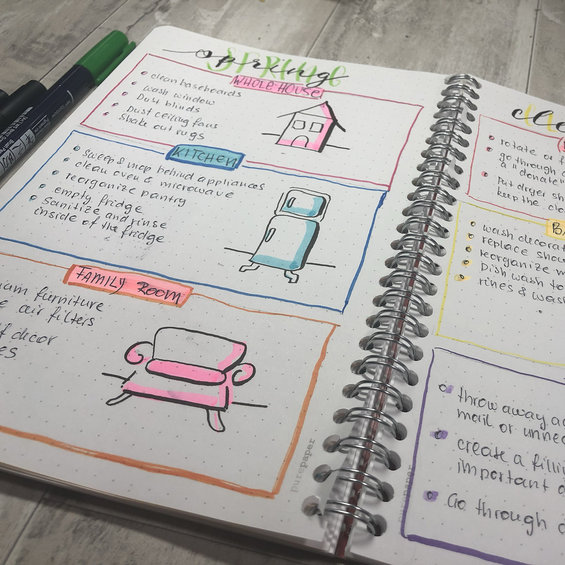 Spring
WHOLE HOUSE
clean baseboards
wash window
Dust blinds
Dust ceiling fans
Shake out rugs
KITCHEN
Sweep & mop behind appliances
clean oven & microwave
reorganize pantry
empty fridge
Sanitize and rinse
inside of the fridge
FAMILY ROOM
furniture
air filters
decor
purepaper
rotate a
go through
a donate
Put dryer
keep the
wash
replace
reorganize
Dish wash
rines &
throw away
mail or
create a
important
Go through
purepaper